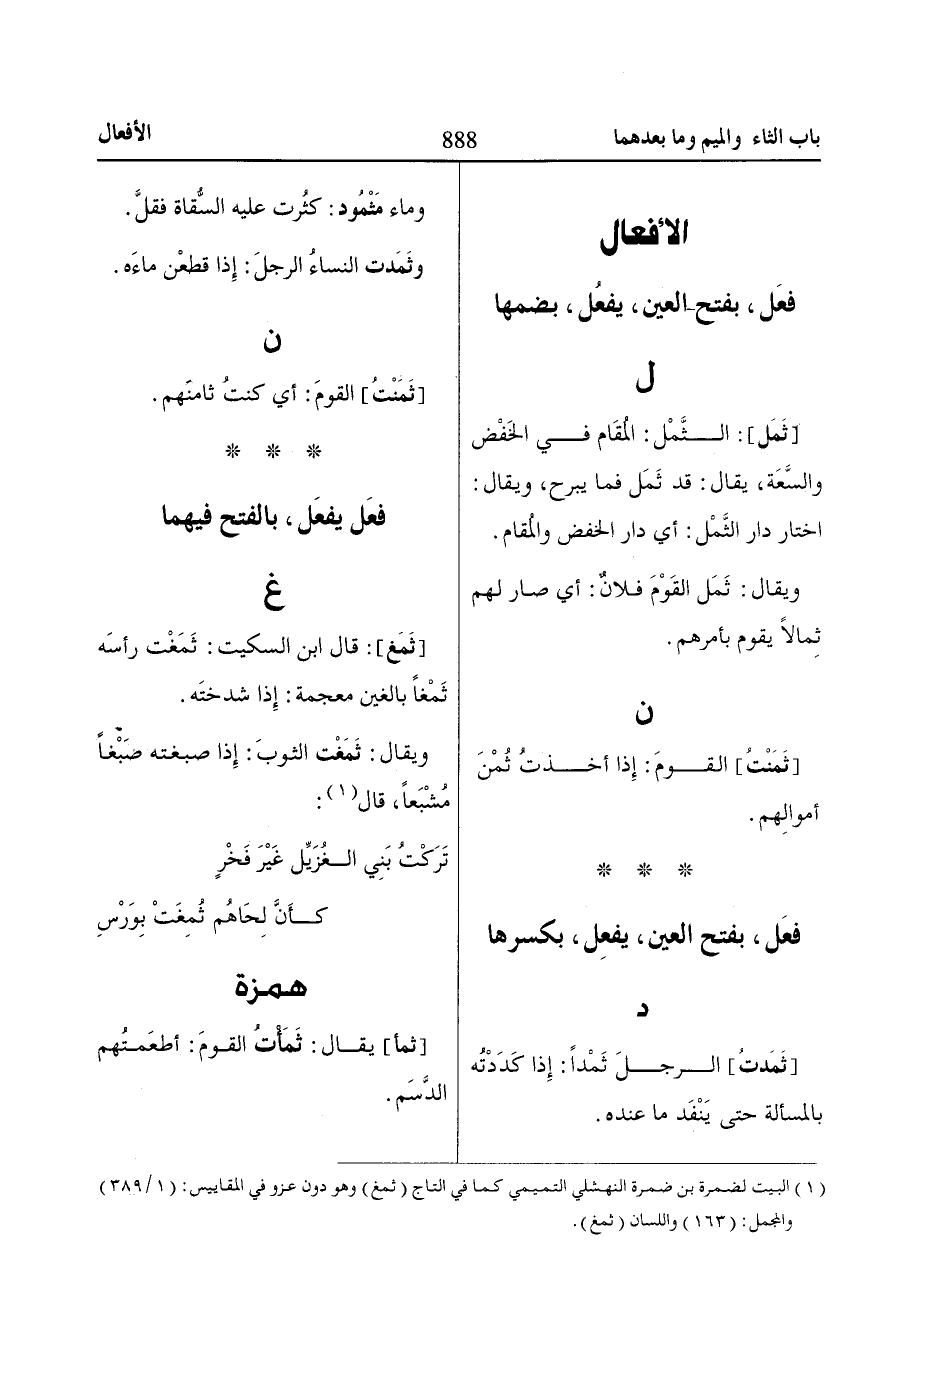 باب الثاء والميم وما بعدهما
888
الأفعال
الأفعال
فعَل، بفتح العين، يفعُل، بضمها
ل
[ثَمَل]: الــثَّمْل: المُقَام فــي الخَفْض
والسَّعَة، يقال: قد ثَمَل فما يبرح، ويقال:
اختار دار الثَّمْل: أي دار الخفض والمُقام.
ويقال: ثَمَل القَوْمَ فلانٌ: أي صار لهم
ثِمالاً يقوم بأمرهم.
ن
[ثَمَنْتُ] القــومَ: إذا أخــذتُ ثُمْنَ
أموالِهم.
* * *
فعَل، بفتح العين، يفعِل، بكسرها
د
[ثَمَدتُ] الــرجــلَ ثَمْداً: إذا كَدَدْتُه
بالمسألة حتى يَنْفَد ما عنده.
وماء مَثْمُود: كثُرت عليه السُّقاة فقلَّ.
وثَمَدت النساءُ الرجلَ: إذا قطعْن ماءَه.
ن
[ثَمَنْتُ] القومَ: أي كنتُ ثامنَهم.
* * *
فعَل يفعَل، بالفتح فيهما
غ
[ثَمَغ]: قال ابن السكيت: ثَمَغْت رأسَه
ثَمْغاً بالغين معجمة: إذا شدختَه.
ويقال: ثَمَغْت الثوبَ: إذا صبغته صَبْغاً
مُشْبَعاً، قال(١):
تَرَكْتُ بَنِي الــغُزَيِّل غَيْرَ فَخْرٍ
كــأنَّ لِحَاهُم ثُمِغَتْ بِوَرْسِ
همزة
[ثمأ] يقــال: ثَمَأْتُ القومَ: أطعَمتُهم
الدَّسَم.
(١) البيت لضمرة بن ضمرة النهشلي التميمي كما في التاج (ثمغ) وهو دون عزو في المقاييس: (١/٣٨٩)
والمجمل: (١٦٣) واللسان (ثمغ).